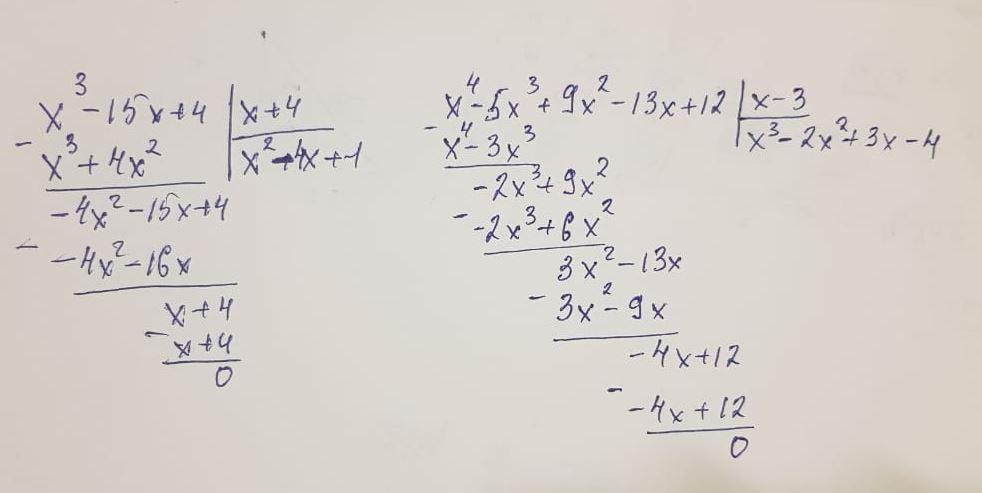 x³-15x+4 | x+4
- x³+4x² | x²-4x+1
-4x²-15x+4
- -4x²-16x
x+4
- x+4
0
x⁴-5x³+9x²-13x+12 | x-3
- x⁴-3x³ | x³-2x²+3x-4
-2x³+9x²
- -2x³+6x²
3x²-13x
- 3x²-9x
-4x+12
- -4x+12
0